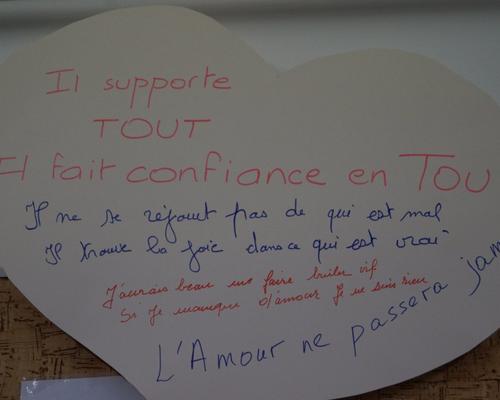 Il supporte
TOUT
Il fait confiance en TOU
Il ne se réjouit pas de qui est mal
Il trouve la joie dans ce qui est vrai
J'aurais beau me faire brûler vif
Si Je manque d'amour Je ne suis rien
L'Amour ne passera jam